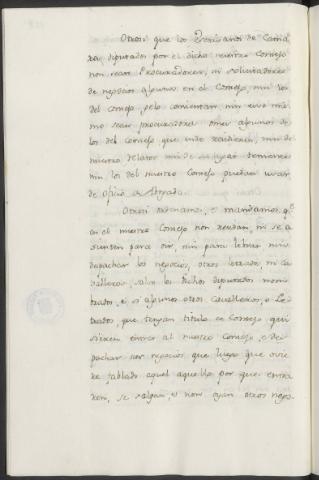 Otrosi que los Escrivanos de Cama
ra diputados por el dicho nuestro Consejo
non sean Procuradores, ni solicitadores
de negocios algunos en el Consejo, nin los
del consejo, gelo consientan, nin eso mis
mo sean procuradores omes algunos de
los del consejo, que ende residieren, nin de
nuestros Relatores, nin de
nin los del nuestro Consejo puedan usar
de Oficio de Abogado.
Otrosi ordenamos, e mandamos, q.e
en el nuestro Consejo non vendan, ni se a
sienten para oir, nin para librar, nin
despachar los negocios, otros letrados, ni Ca
valleros, salvo los dichos diputados nom
brados, e si algunos otros Cavalleros, o Le
trados, que tengan titulo de Consejo, qui
sieren entrar al nuestro Consejo, e des
pachar sus negocios, que luego que ovie
re fablado aquel aquello por que entra
ren, se salgan, e non oyan otros nego-